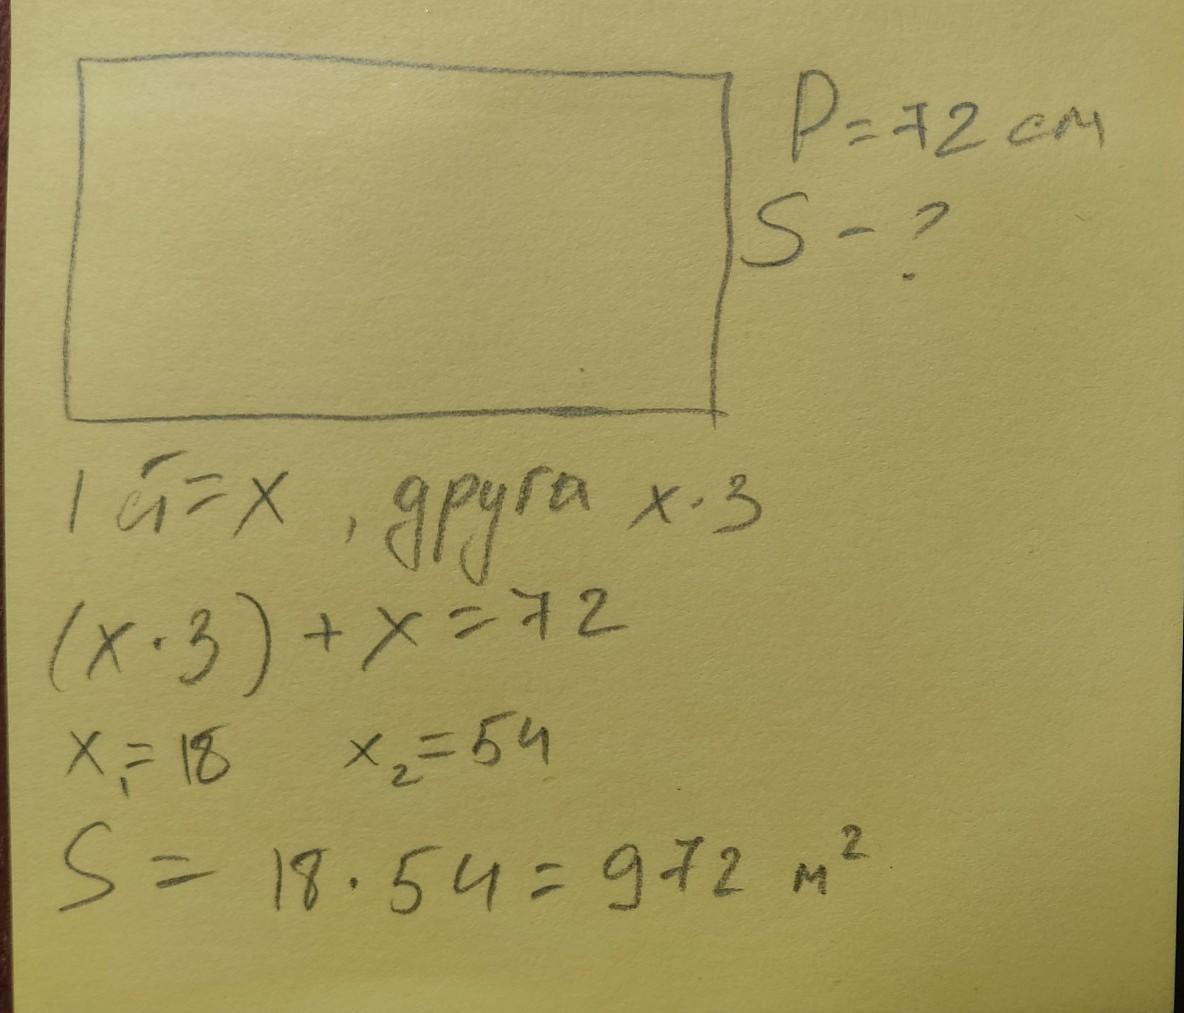 P = 72 см
S - ?
1 й = x , друга x · 3
(x · 3) + x = 72
x₁ = 18 x₂ = 54
S = 18 · 54 = 972 м²